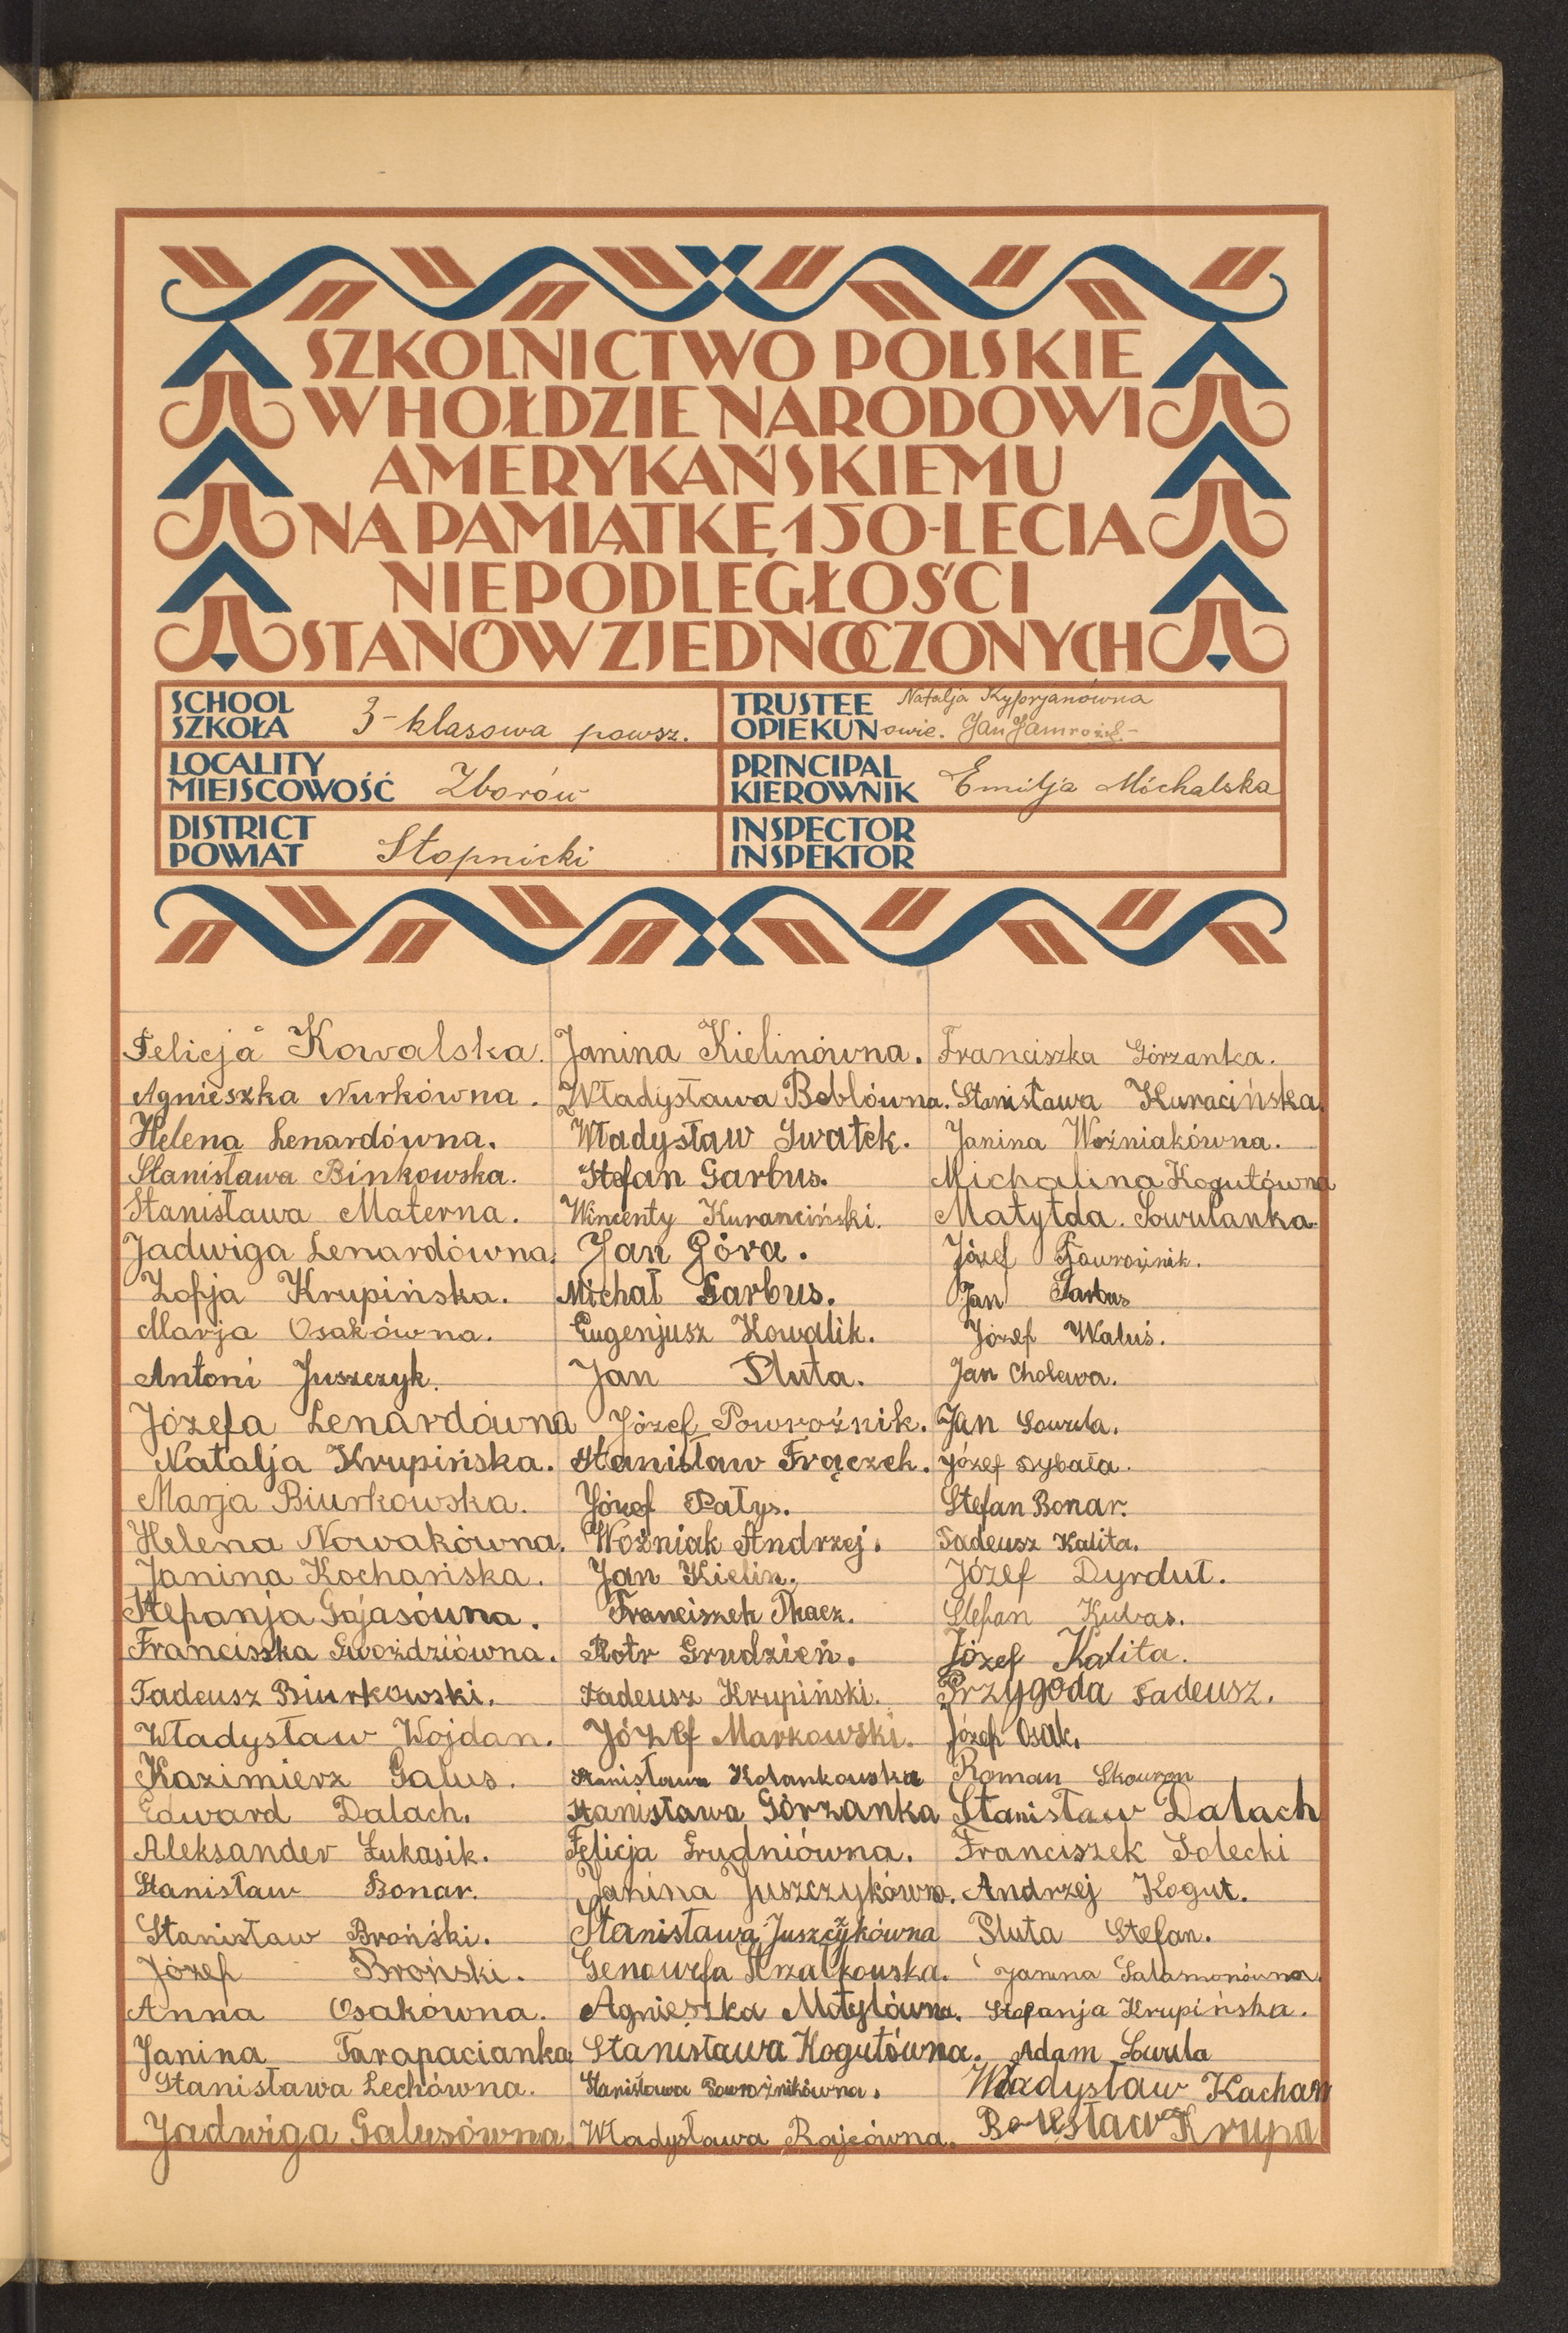 SZKOLNICTWO POLSKIE
W HOŁDZIE NARODOWI
AMERYKAŃSKIEMU
NA PAMIĄTKĘ 150-LECIA
NIEPODLEGŁOŚCI
STANÓW ZJEDNOCZONYCH
SCHOOL
SZKOŁA 3-klasowa powsz.
TRUSTEE Natalja Kyprjanówna
OPIEKUN owie. Jan Jamrożek
LOCALITY
MIEJSCOWOŚĆ Zborów
PRINCIPAL
KIEROWNIK Emilja Michalska
DISTRICT
POWIAT Stopnicki
INSPECTOR
INSPEKTOR
Felicja Kowalska.
Agnieszka Nurkówna.
Helena Lenardówna.
Stanisława Binkowska.
Stanisława Materna.
Jadwiga Lenardówna.
Zofja Krupińska.
Marja Osakówna.
Antoni Juszczyk.
Józefa Lenardówna
Natalja Krupińska.
Marja Biurkowska.
Helena Nowakówna.
Janina Kochańska.
Stepanja Gajasówna.
Franciszka Gwoździówna.
Tadeusz Biurkowski.
Władysław Wojdan.
Kazimierz Galus.
Edward Dalach.
Aleksander Łukasik.
Stanisław Bonar.
Stanisław Broński.
Józef Broński.
Anna Osakówna.
Janina Tarapacianka
Stanisława Lechówna.
Jadwiga Galusówna
Janina Kielinówna.
Władysława Boblówna.
Władysław Swatek.
Stefan Garbus.
Wincenty Kuranciński.
Jan Góra.
Michał Garbus.
Eugenjusz Kowalik.
Jan Pluta.
Józef Powroźnik.
Stanisław Frączek.
Józef Patys.
Woźniak Andrzej.
Jan Kielin.
Franciszek Tkacz.
Piotr Grudzień.
Tadeusz Krupiński.
Józef Markowski.
Stanisława Kolankowska
Stanisława Górzanka
Felicja Grudniówna.
Janina Juszczykówna.
Stanisława Juszczykówna
Genowefa Strzałkowska.
Agnieszka Motylówna.
Stanisława Kogutówna.
Stanisława Powroźnikówna.
Władysława Rajcówna.
Franciszka Górzanka.
Stanisława Kuracińska.
Janina Woźniakówna.
Michalina Kogutówna
Matylda. Sowulanka
Józef Powroźnik.
Jan Garbus
Józef Waluś.
Jan Cholewa.
Jan Sowula.
Józef Dybała.
Stefan Bonar.
Tadeusz Kalita.
Józef Dyrdut.
Stefan Kubas.
Józef Kalita.
Przygoda Tadeusz.
Józef Osak.
Roman Skowron
Stanisław Dalach
Franciszek Solecki
Andrzej Kogut.
Pluta Stefan.
Janina Salamonówna.
Stefanja Krupińska.
Adam Sowula
Władysław Kachan
Bolesław Krupa